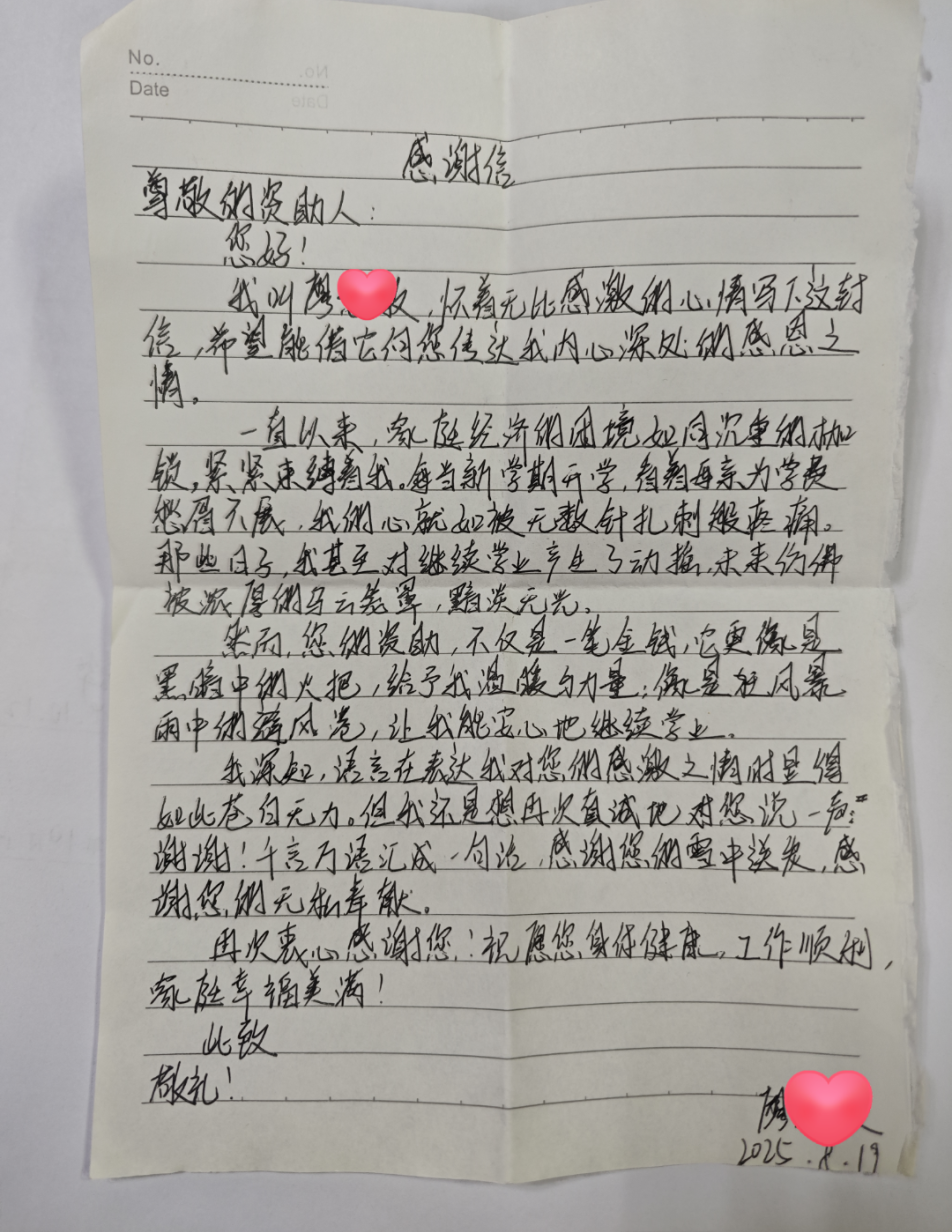 No.
Date
感谢信
尊敬的资助人：
您好！
我叫廖，怀着无比感激的心情写下这封
信，希望能借它向您传达我内心深处的感恩之
情。
一直以来，家庭经济的困境如同沉重的枷
锁，紧紧束缚着我。每当新学期开学，看着母亲为学费
愁眉不展，我的心就如被无数针扎刺般疼痛。
那些日子，我甚至对继续学业产生了动摇，未来仿佛
被浓厚的乌云笼罩，黯淡无光。
然而，您的资助，不仅是一笔金钱，它更像是
黑暗中的火把，给予我温暖与力量；像是狂风暴
雨中的避风港，让我能安心地继续学业。
我深知，语言在表达我对您的感激之情时显得
如此苍白无力。但我还是想再次真诚地对您说一声：“
谢谢！千言万语汇成一句话，感谢您的雪中送炭，感
谢您的无私奉献。
再次衷心感谢您！祝愿您身体健康，工作顺利，
家庭幸福美满！
此致
敬礼！
廖
2025.8.19